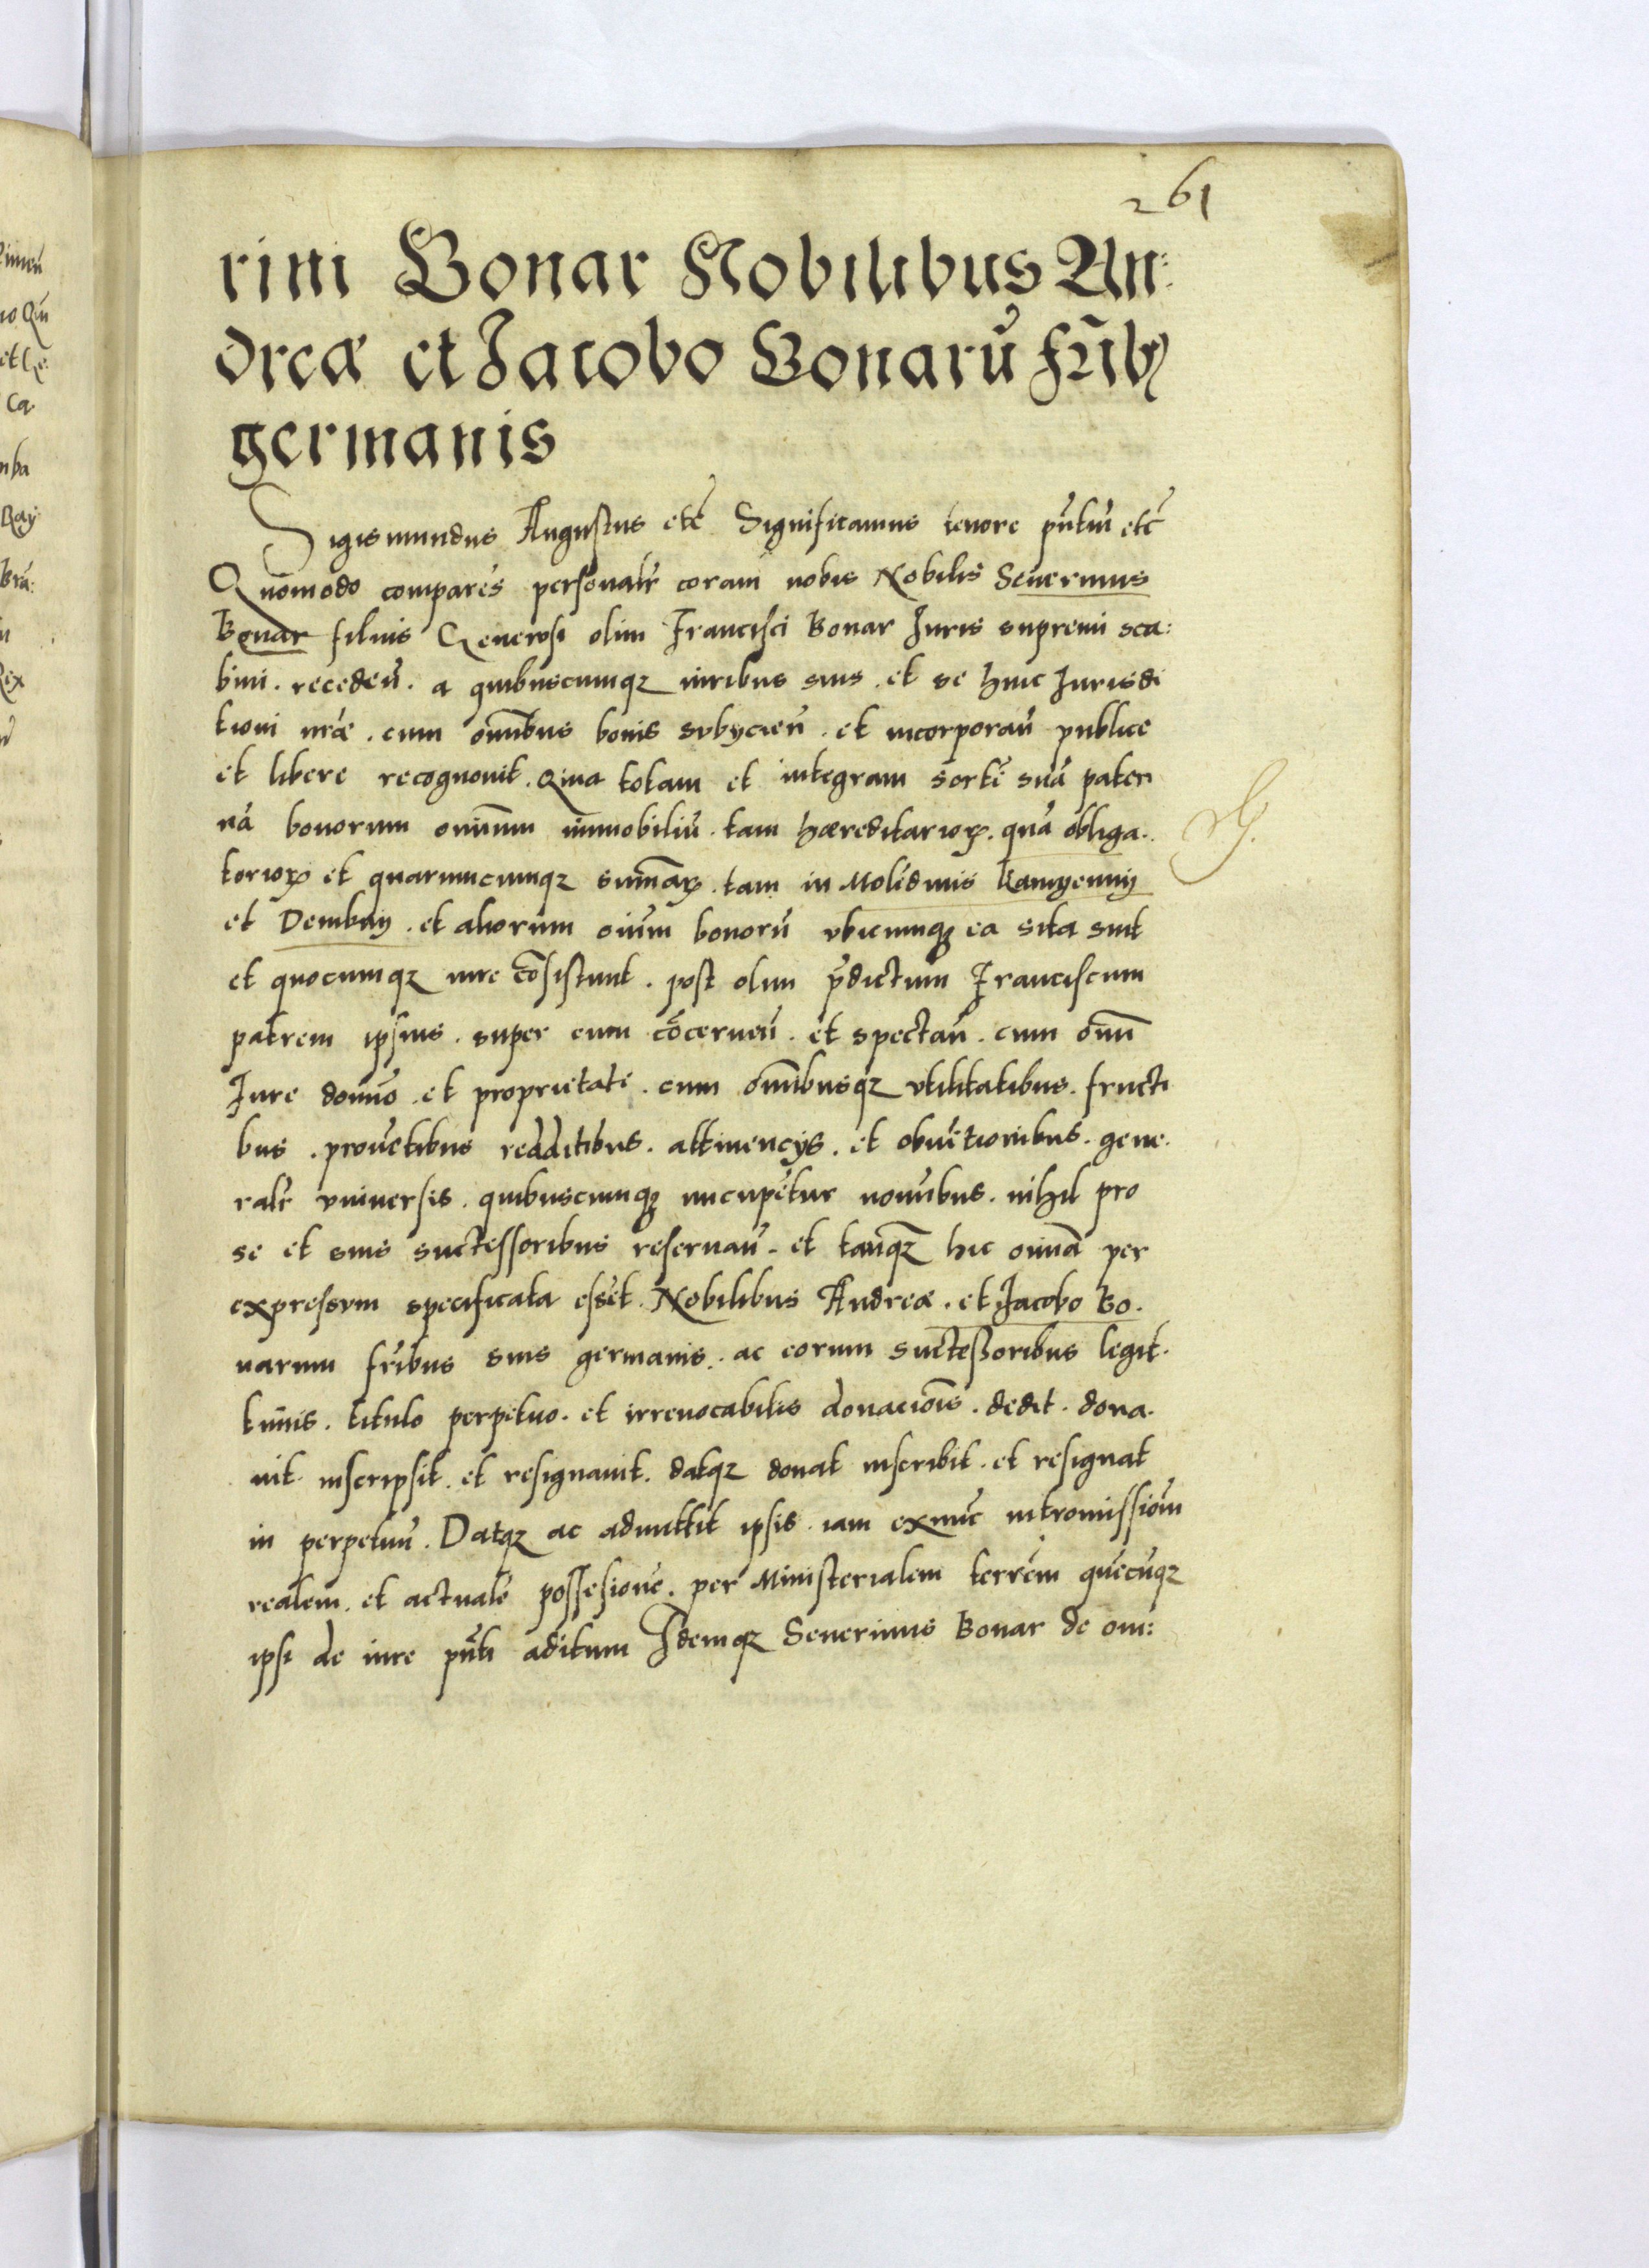 261
rini Bonar Nobilibus An:
dreæ et Jacobo Bonarū frībȝ
germanis
Sigismundus Augustus etc̄ Significamus tenore pn̄tiū etc̄
Quomodo comparēs personalr̄ coram nobis Nobilis Seuerinus
Bonar filius Generosi olim Francisci Bonar Juris supremi sca:
bini . recedeñ . a quibuscumqȝ iuribus suis . et se huic Jurisdi
tioni nr̄æ . cum om̄ibus bonis subycieñ . et incorporañ publice
et libere recognouit . Quia totam et integram sortē suā pater
nā bonorum omnium immobiliū . tam hæreditarioꝝ . quā obliga.
torioꝝ et quarumcumqȝ summaꝝ . tam in Molēdinis Kamyenny
et Dembny . et aliorum oīum bonorū vbicumqȝ ea sita sint
et quocumqȝ iure cōsistunt . post olim p̄dictum Franciscum
patrem ipsius . super eum cōcerneñ . et spectañ . cum om̄i
Jure domīo . et proprietate . cum om̄ibusqȝ vtilitatibus . fructi
bus . prouētibus redditibus . attinencijs . et obuētionibus . gene.
ralr̄ vniuersis . quibuscumqȝ nūcupētur noīnibus . nihil pro
se et suis suctessoribus reseruañ . et tanqȝ hic oīmā per
expressum specificata essēt . Nobilibus Andreæ . et Jacobo Bo.
narum frībus suis germanis . ac eorum suctessoribus legit.
timis . titulo perpetuo . et irreuocabilis donaciōis . dedit . dona.
uit inscripsit . et resignauit . datqȝ donat inscribit . et resignat
in perpetuū . Datqȝ ac admittit ipsis . iam exnūc intromissionē
realem . et actualē possesionē . per Ministerialem terrēm quēcūqȝ
ipsi de iure pn̄ti aditum Idemqȝ Seuerinus Bonar de om: